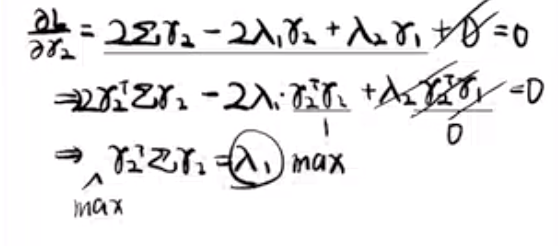 ∂L/∂γ₂ = 2Σγ₂ − 2λ₁γ₂ + λ₂γ₁ + 0 = 0
⇒ 2γ₂ᵀΣγ₂ − 2λ₁·γ₂ᵀγ₂ + λ₂γ₂ᵀγ₁ = 0
1 0
⇒ γ₂ᵀΣγ₂ = λ₁ max
max